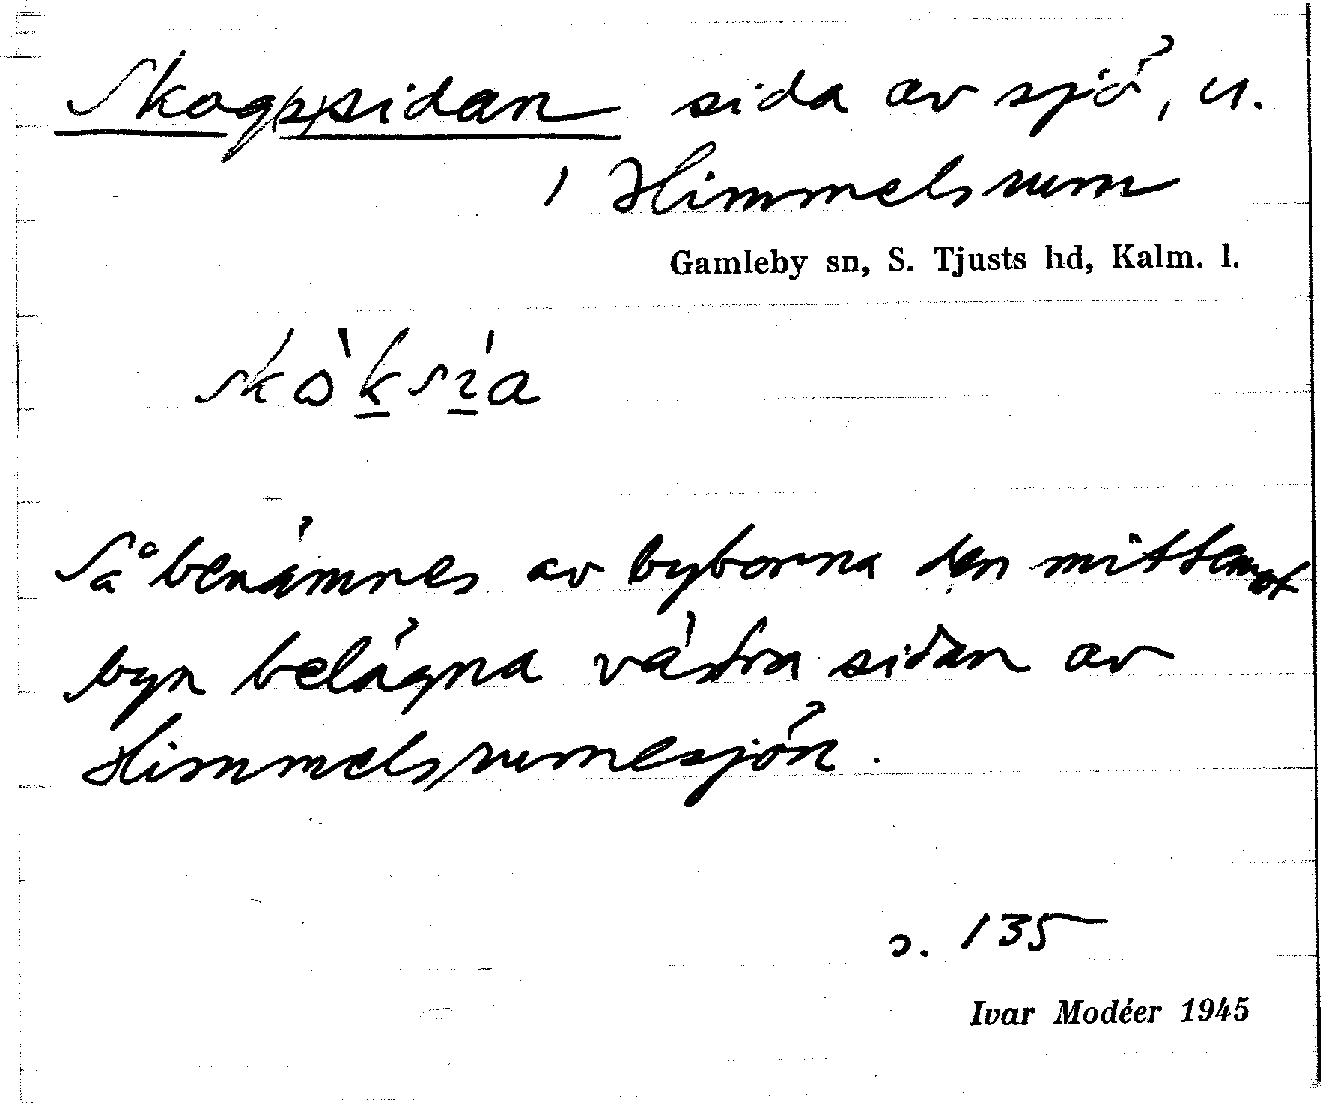 Skog(s)sidan sida av sjö, u.
Himmelsrum
Gamleby sn, S. Tjusts hd, Kalm. l.
Så benämnes av byborna den mittemot
byn belägna västra sidan av
Himmelsrumesjön.
s. 135
Ivar Modéer 1945